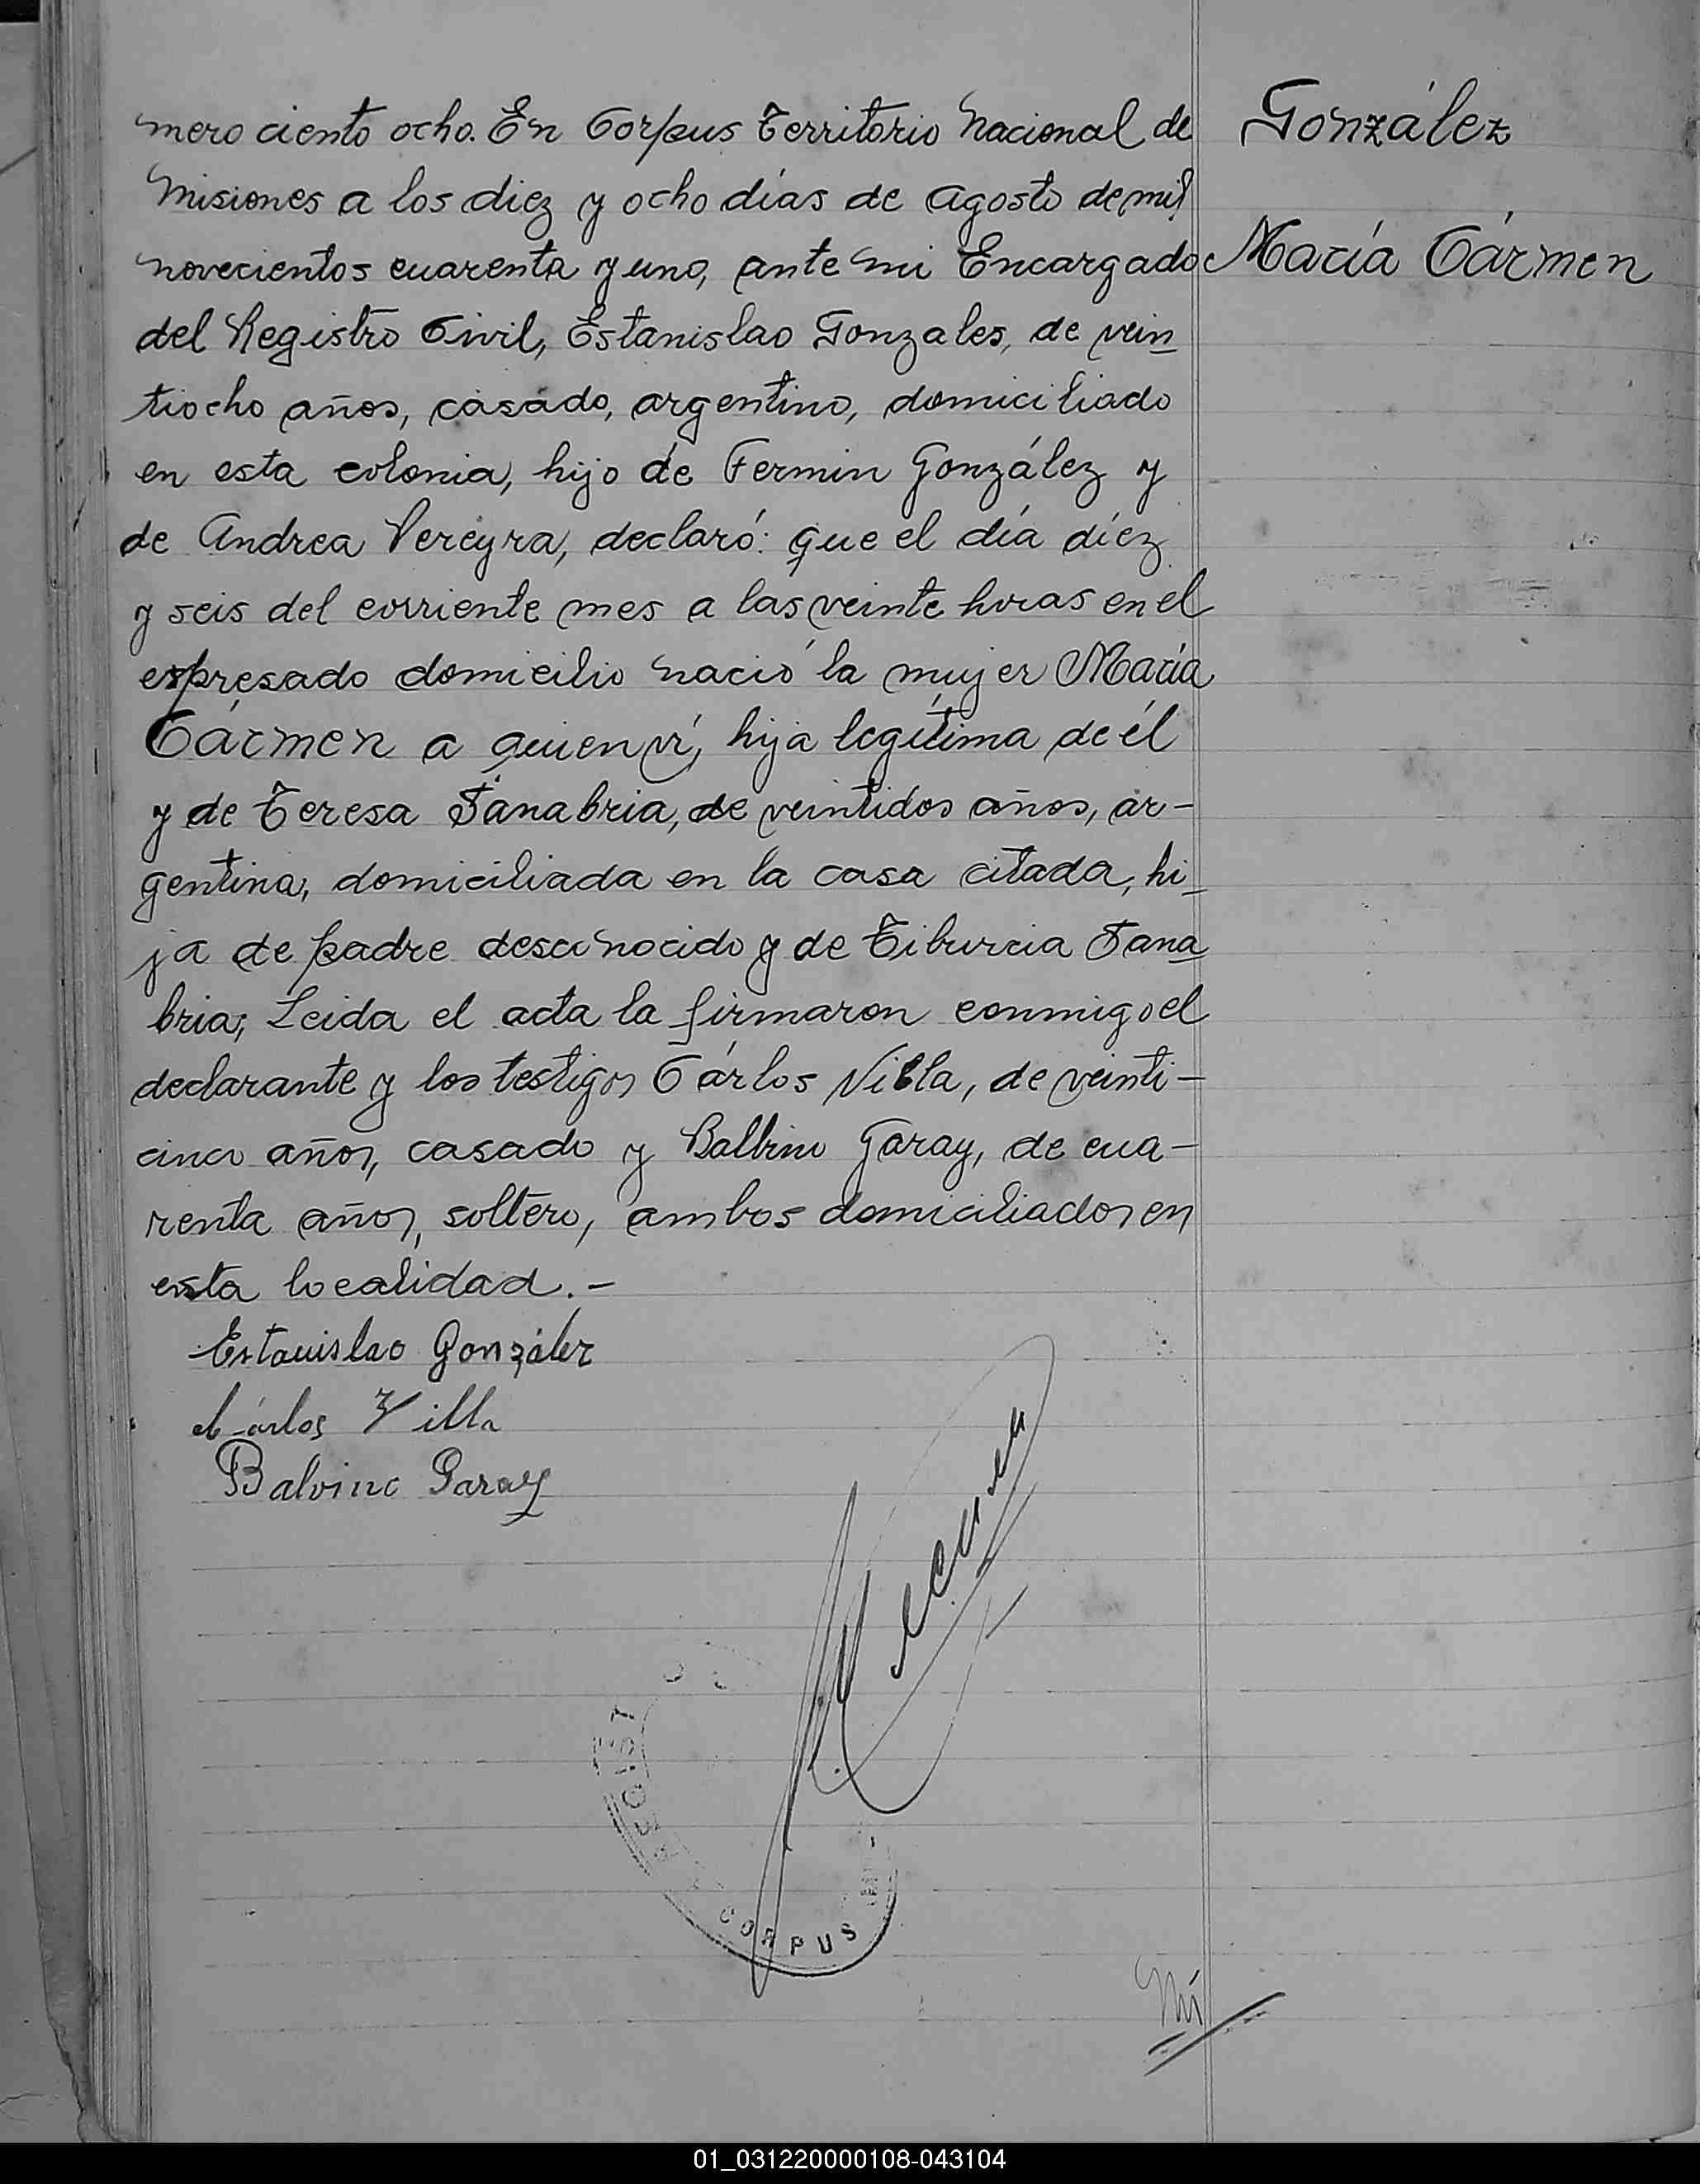 mero ciento ocho. En Corpus Territorio Nacional de
Misiones a los diez y ocho días de Agosto de mil
novecientos cuarenta y uno, ante mi Encargado
del Registro Civil, Estanislao Gonzales, de vein
tiocho años, casado, argentino, domiciliado
en esta colonia, hijo de Fermin González y
de Andrea Pereyra, declaró: que el día diez
y seis del corriente mes a las veinte horas en el
espresado domicilio nació la mujer María
Cármen a quien ví, hija legítima de él
y de Teresa Sanabria, de veintidos años, ar-
gentina, domiciliada en la casa citada, hi-
ja de padre desconocido y de Tiburcia Sana
bria; Leida el acta la firmaron conmigo el
declarante y los testigos Cárlos Villa, de veinti-
cinco años, casado y Balbino Garay, de cua-
renta años, soltero, ambos domiciliados en
esta localidad.-
Estanislao González
Cárlos Villa
Balvino Garay
González
María Cármen
REGIST
CORPUS
01_031220000108-043104